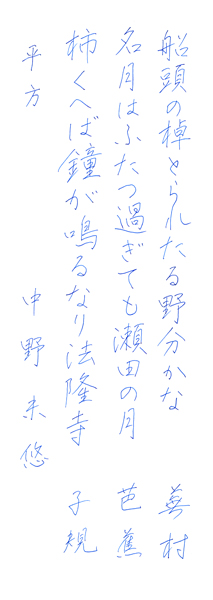 船頭の棹とられたる野分かな 蕪村
名月はふたつ過ぎても瀬田の月 芭蕉
柿くへば鐘が鳴るなり法隆寺 子規
平方 中野未悠